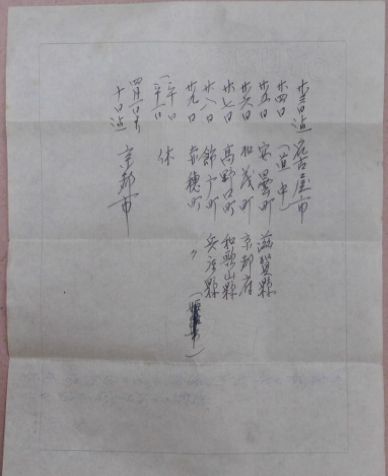 廿三日迄 名古屋市
廿四日 (道中)
廿五日 安曇町 滋賀縣
廿六日 加茂町 京都府
廿七日 高野口町 和歌山縣
廿八日 兵庫縣
廿九日 赤穂町 〃
三十日 休
三十一日
四月一日ヨリ
十日迄 京都市